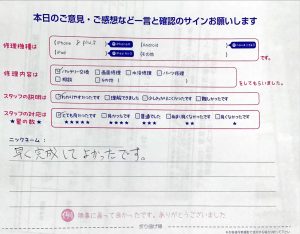 本日のご意見・ご感想など一言と確認のサインお願いします
修理機種は
iPhone 8 plus
Android
iPad
その他
です。
修理内容は
バッテリー交換 画面修理 水没修理 パーツ修理
相談 その他
をしてもらいました。
スタッフの説明は
わかりやすかったです 理解できました 少しわかりにくかったです 難しかったです
スタッフの対応は
★星の数★
とても良かったです 良かったです 普通でした あまり良くなかったです 良くなかったです
★★★★★ ★★★★ ★★★ ★★ ★
ニックネーム:
早く完成してよかったです。
検事に直って良かったです。ありがとうございました
折り曲げ線